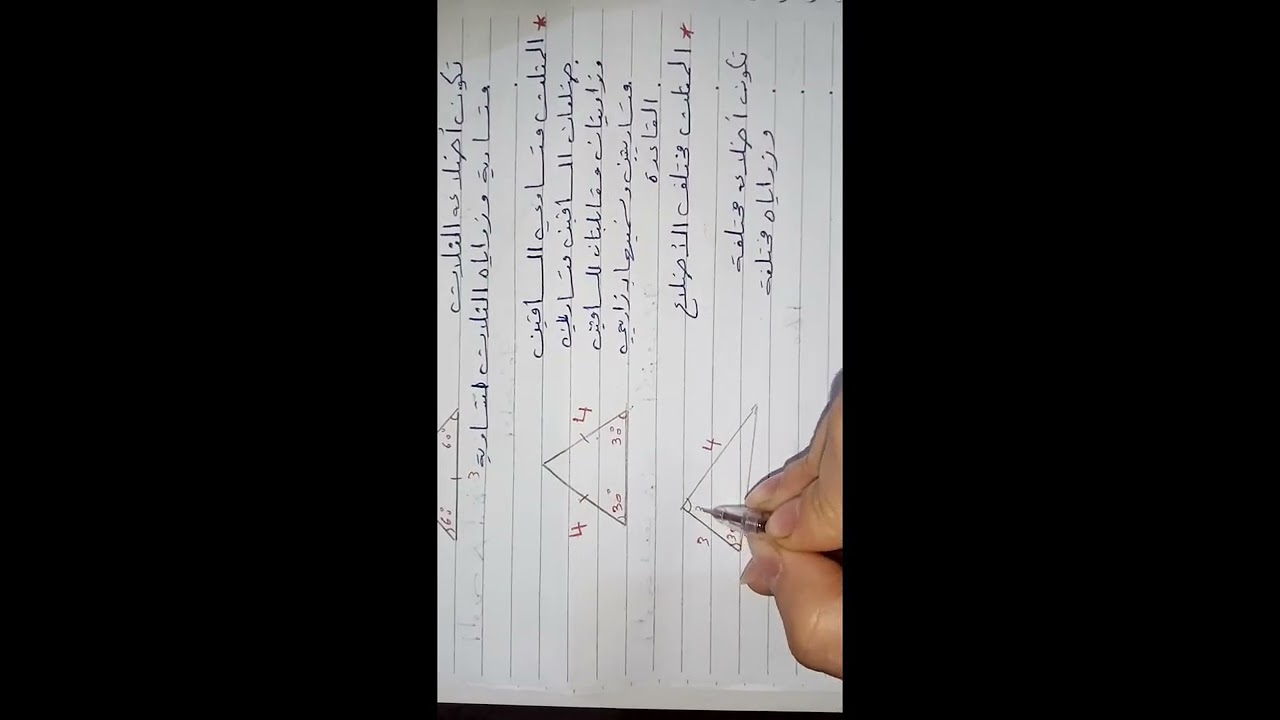 تكون أضلاعه الثلاث
متساوية وزواياه الثلاث متساوية
60°
60°
3
* المثلث متساوي الساقين
ضلعان الساقين متساويين
وزاويتان مقابلتان للساقين
متساويتين وسميتها بزاويتي
القاعدة
4
4
30°
30°
* المثلث مختلف الأضلاع
تكون أضلاعه مختلفة
وزواياه مختلفة
4
3